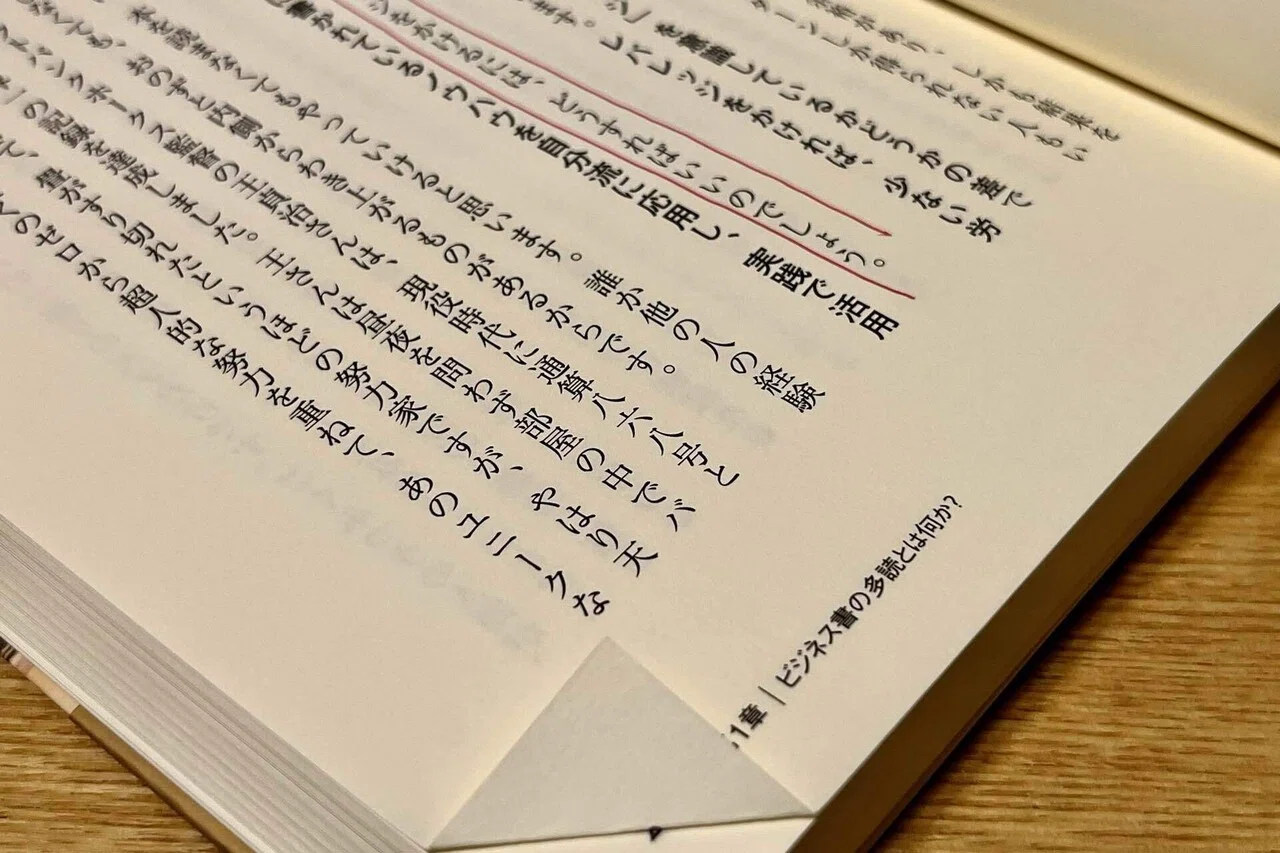 があり、しかも結果を
ターンしか得られない人もい
ジ」を意識しているかどうかの差で
ます。レバレッジをかければ、少ない労
ジをかけるには、どうすればいいのでしょう。
に書かれているノウハウを自分流に応用し、実践で活用
本を読まなくてもやっていけると思います。誰か他の人の経験
なくても、おのずと内側からわき上がるものがあるからです。
フトバンクホークス監督の王貞治さんは、現役時代に通算八六八号と
」の記録を達成しました。王さんは昼夜を問わず部屋の中でバ
て、畳がすり切れたというほどの努力家ですが、やはり天
くのゼロから超人的な努力を重ねて、あのユニークな
1章｜ビジネス書の多読とは何か?